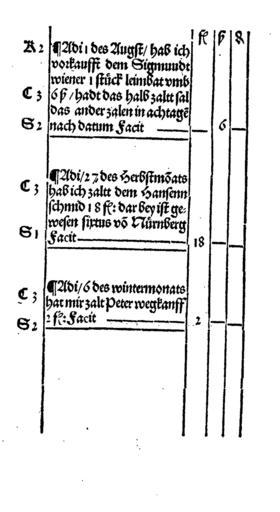 fl ꝑ ₰
K 2 ¶Adi 1 des Augst/hab ich
vorkaufft dem Sigmundt
wiener 1 stück leimbat vmb
C 3 6 ꝑ/hadt das halb zaltt sal
das ander zalen in achtagē
S 2 nach datum Facit — 6 —
¶Adi/27 des Herbstmōats
C 3 hab ich zaltt dem Hansenn
schmid 18 fl: dar bey ist ge-
wesen sixtus vō Nürnberg
S 1 Facit — 18 — —
¶Adi/6 des wintermonats
C 3 hat mir zalt Peter wegkanff
S 2 2 fl: Facit — 2 — —